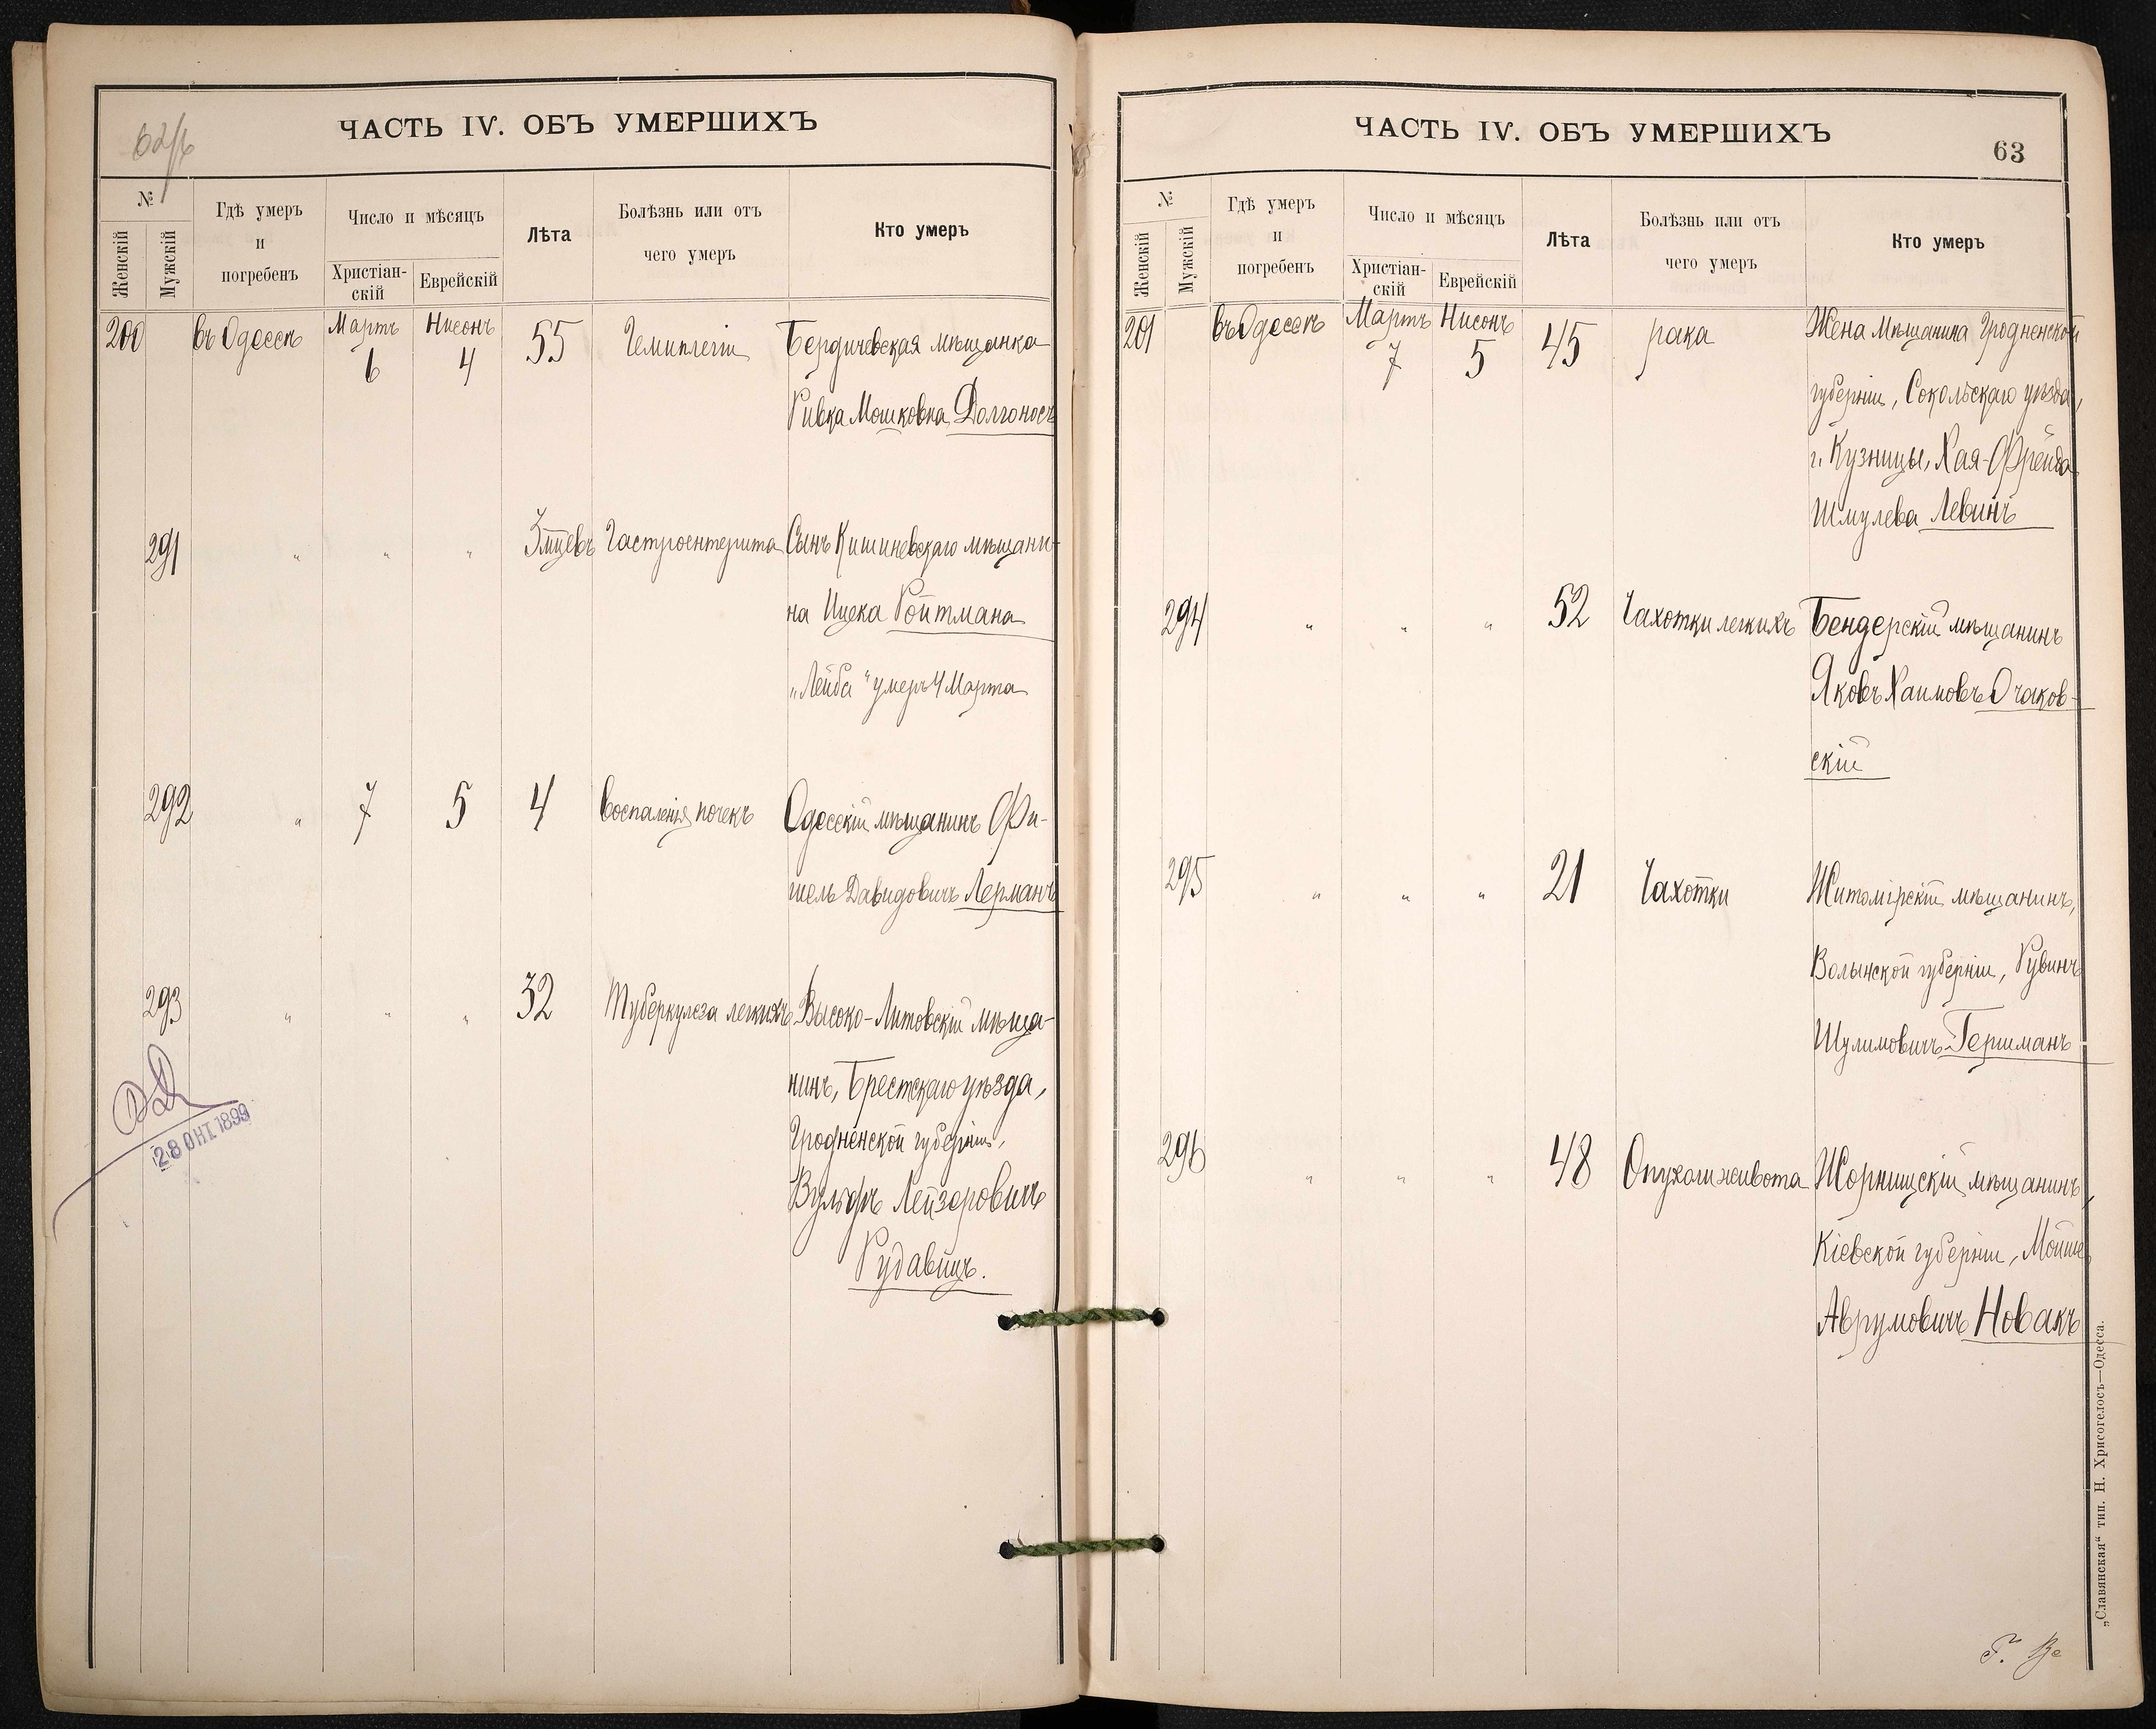 62/b
ЧАСТЬ IV. ОБЪ УМЕРШИХЪ
№
Женскій
Мужскій
Гдѣ умеръ
и
погребенъ
Число и мѣсяцъ
Христіан-
скій
Еврейскій
Лѣта
Болѣзнь или отъ
чего умеръ
Кто умеръ
200 въ Одессѣ Мартъ 6 Нисонъ 4 55 Гемиплегіи Бердичевская мѣщанка
Ривка Мошковна Долгоносъ
291 " " " 3 мцевъ Гастроентерита Сынъ Кишиневскаго мѣщани-
на Ицека Ройтмана
„Лейба“ умеръ 4 Марта
292 " 7 5 4 Воспаленія почекъ Одесскій мѣщанинъ Фи-
шель Давидовичъ Лерманъ
293 " " " 32 Туберкулеза легкихъ Высоко-Литовскій мѣща-
нинъ, Брестскаго уѣзда,
Гродненской губерніи,
Вульфъ Лейзеровичъ
Рудавицъ.
1899
ЧАСТЬ IV. ОБЪ УМЕРШИХЪ
63
№
Женскій
Мужскій
Гдѣ умеръ
и
погребенъ
Число и мѣсяцъ
Христіан-
скій
Еврейскій
Лѣта
Болѣзнь или отъ
чего умеръ
Кто умеръ
201 въ Одессѣ Мартъ 7 Нисонъ 5 45 рака Жена мѣщанина Гродненской
губерніи, Сокольскаго уѣзда,
г. Кузницы, Хая-Фрейда
Шмулева Левинъ
294 " " " 52 Чахотки легкихъ Бендерскій мѣщанинъ
Яковъ Хаимовъ Очаков-
скій
295 " " " 21 Чахотки Житомірскій мѣщанинъ,
Волынской губерніи, Рувинъ
Шулимовичъ Гершманъ
296 " " " 48 Опухоли живота Жорнищскій мѣщанинъ,
Кіевской губерніи, Мойше
Аврумовичъ Новакъ
„Славянская“ тип. Н. Хрисогелосъ—Одесса.